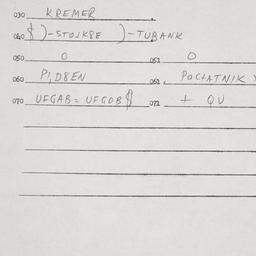 030 KREMER
040 $ )-STOJKSE )-TUBANK
050 0 051 0
060 PI, D8EN 061 POCŁATNIK
070 UFGAB = UFGOB $ 072 + QU